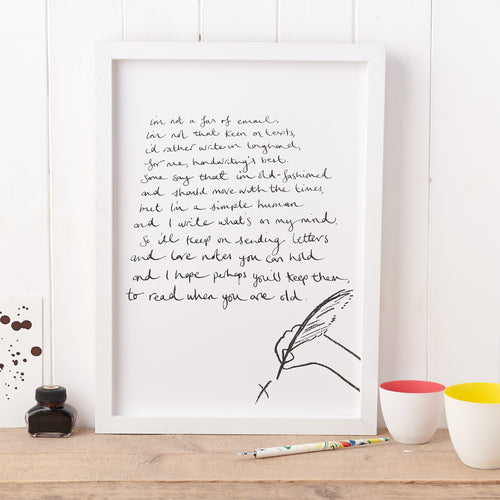 i'm not a fan of email,
i'm not that keen on texts,
i'd rather write in longhand,
for me, handwriting's best.
Some say that i'm old-fashioned
and should move with the times,
but i'm a simple human
and I write what's on my mind.
So i'll keep on sending letters
and love notes you can hold
and I hope perhaps you'll keep them,
to read when you are old.
x